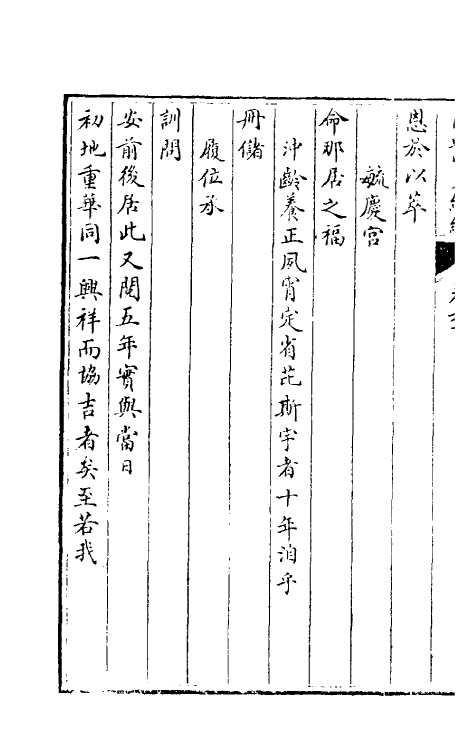 恩於以萃
毓慶宮
命那居之福
沖齡養正夙宵定省茈斯宇者十年洎乎
冊儲
履位承
訓閱
安前後居此又閱五年實與當日
初地重華同一興祥而協吉者矣至若我